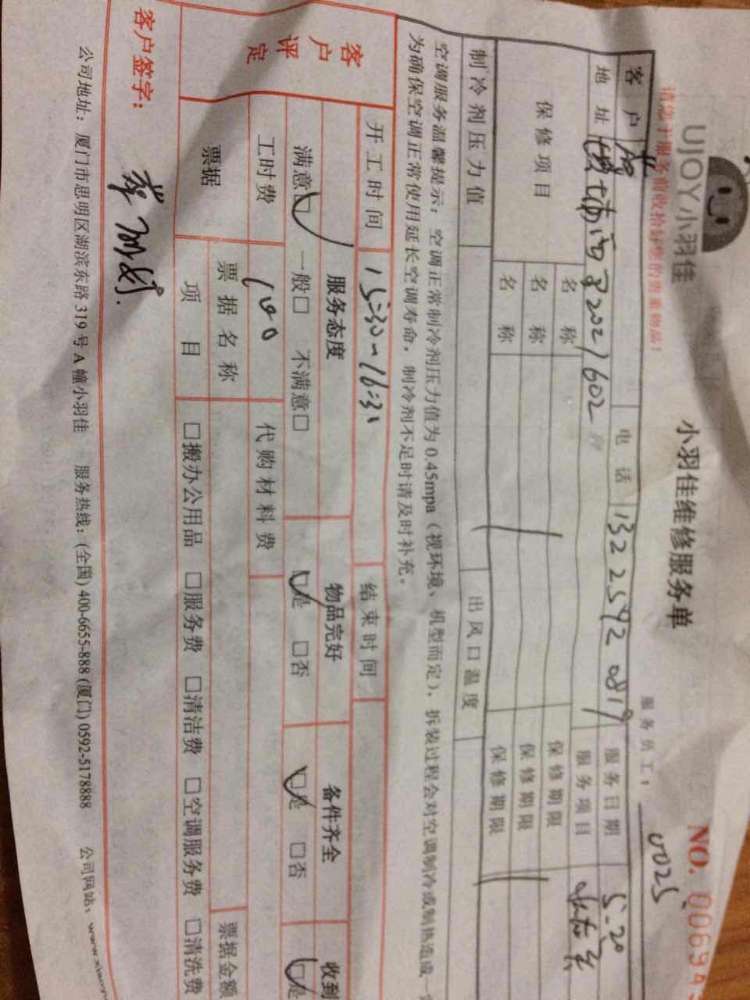 UJOY小羽佳
小羽佳维修服务单
NO. 00694
服务员工： 0025
请您于服务前收拾好您的贵重物品！
客户 电话 13225920819 服务日期 5.20
地址 2027602 服务项目
保修项目 名称 保修期限
名称 保修期限
名称 保修期限
制冷剂压力值 出风口温度
空调服务温馨提示：空调正常制冷剂压力值为0.45mpa（视环境、机型而定），拆装过程会对空调制冷或制热造成一
为确保空调正常使用延长空调寿命，制冷剂不足时请及时补充。
开工时间 15:30~16:30 结束时间
客户评定 服务态度 物品完好 备件齐全 收到
满意□ 一般□ 不满意□ □是 □否 □是 □否 □是
工时费 100 代购材料费
票据 票据名称 票据金额
项目 □搬办公用品 □服务费 □清洁费 □空调服务费 □清洗费
客户签字：
公司地址：厦门市思明区湖滨东路319号A幢小羽佳 服务热线：(全国) 400-6655-888 (厦门) 0592-5178888 公司网站：